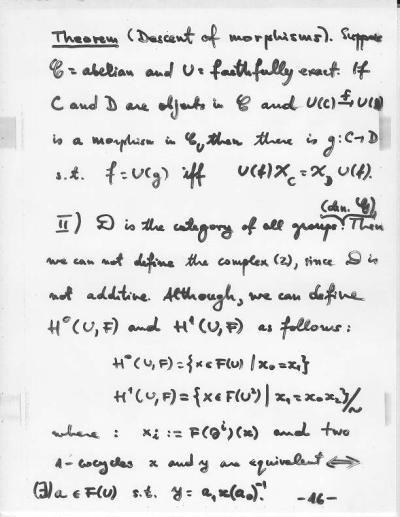 Theorem (Descent of morphisms). Suppose
𝒞 = abelian and U = faithfully exact. If
C and D are objects in 𝒞 and U(C) →f U(D)
is a morphism in 𝒞, then there is g: C → D
s.t. f = U(g) iff U(f) X_C = X_D U(f).
(den. Gr)
II) D is the category of all groups. Then
we can not define the complex (2), since D is
not additive. Although, we can define
H⁰(U,F) and H¹(U,F) as follows:
H⁰(U,F) = {x ∈ F(U) | x₀ = x₁}
H¹(U,F) = {x ∈ F(U²) | x₁ = x₀x₂}/~
where : xᵢ := F(∂ⁱ)(x) and two
1-cocycles x and y are equivalent ⟺
(∃) a ∈ F(U) s.t. y = a₁x(a₀)⁻¹. -16-